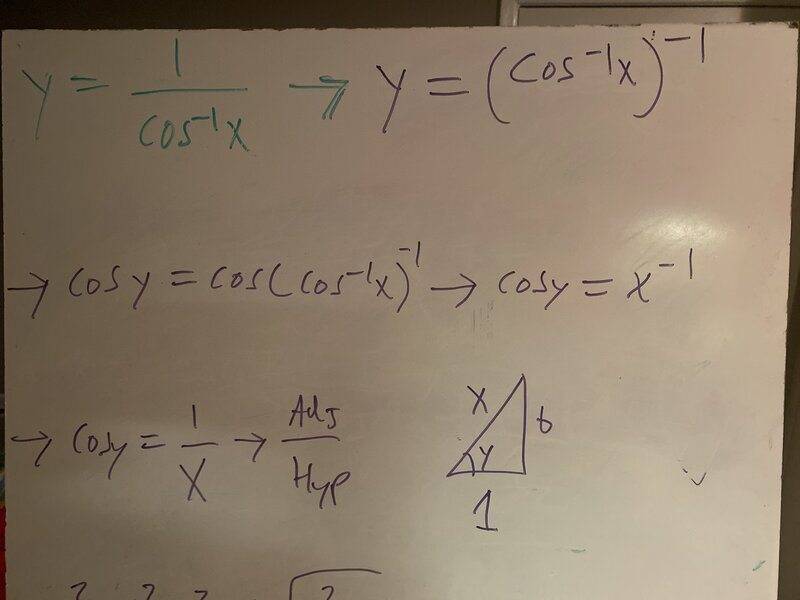 y = 1/cos⁻¹x → y = (cos⁻¹x)⁻¹
→ cos y = cos(cos⁻¹x)⁻¹ → cos y = x⁻¹
→ cos y = 1/x → Adj/Hyp
x
b
y
1